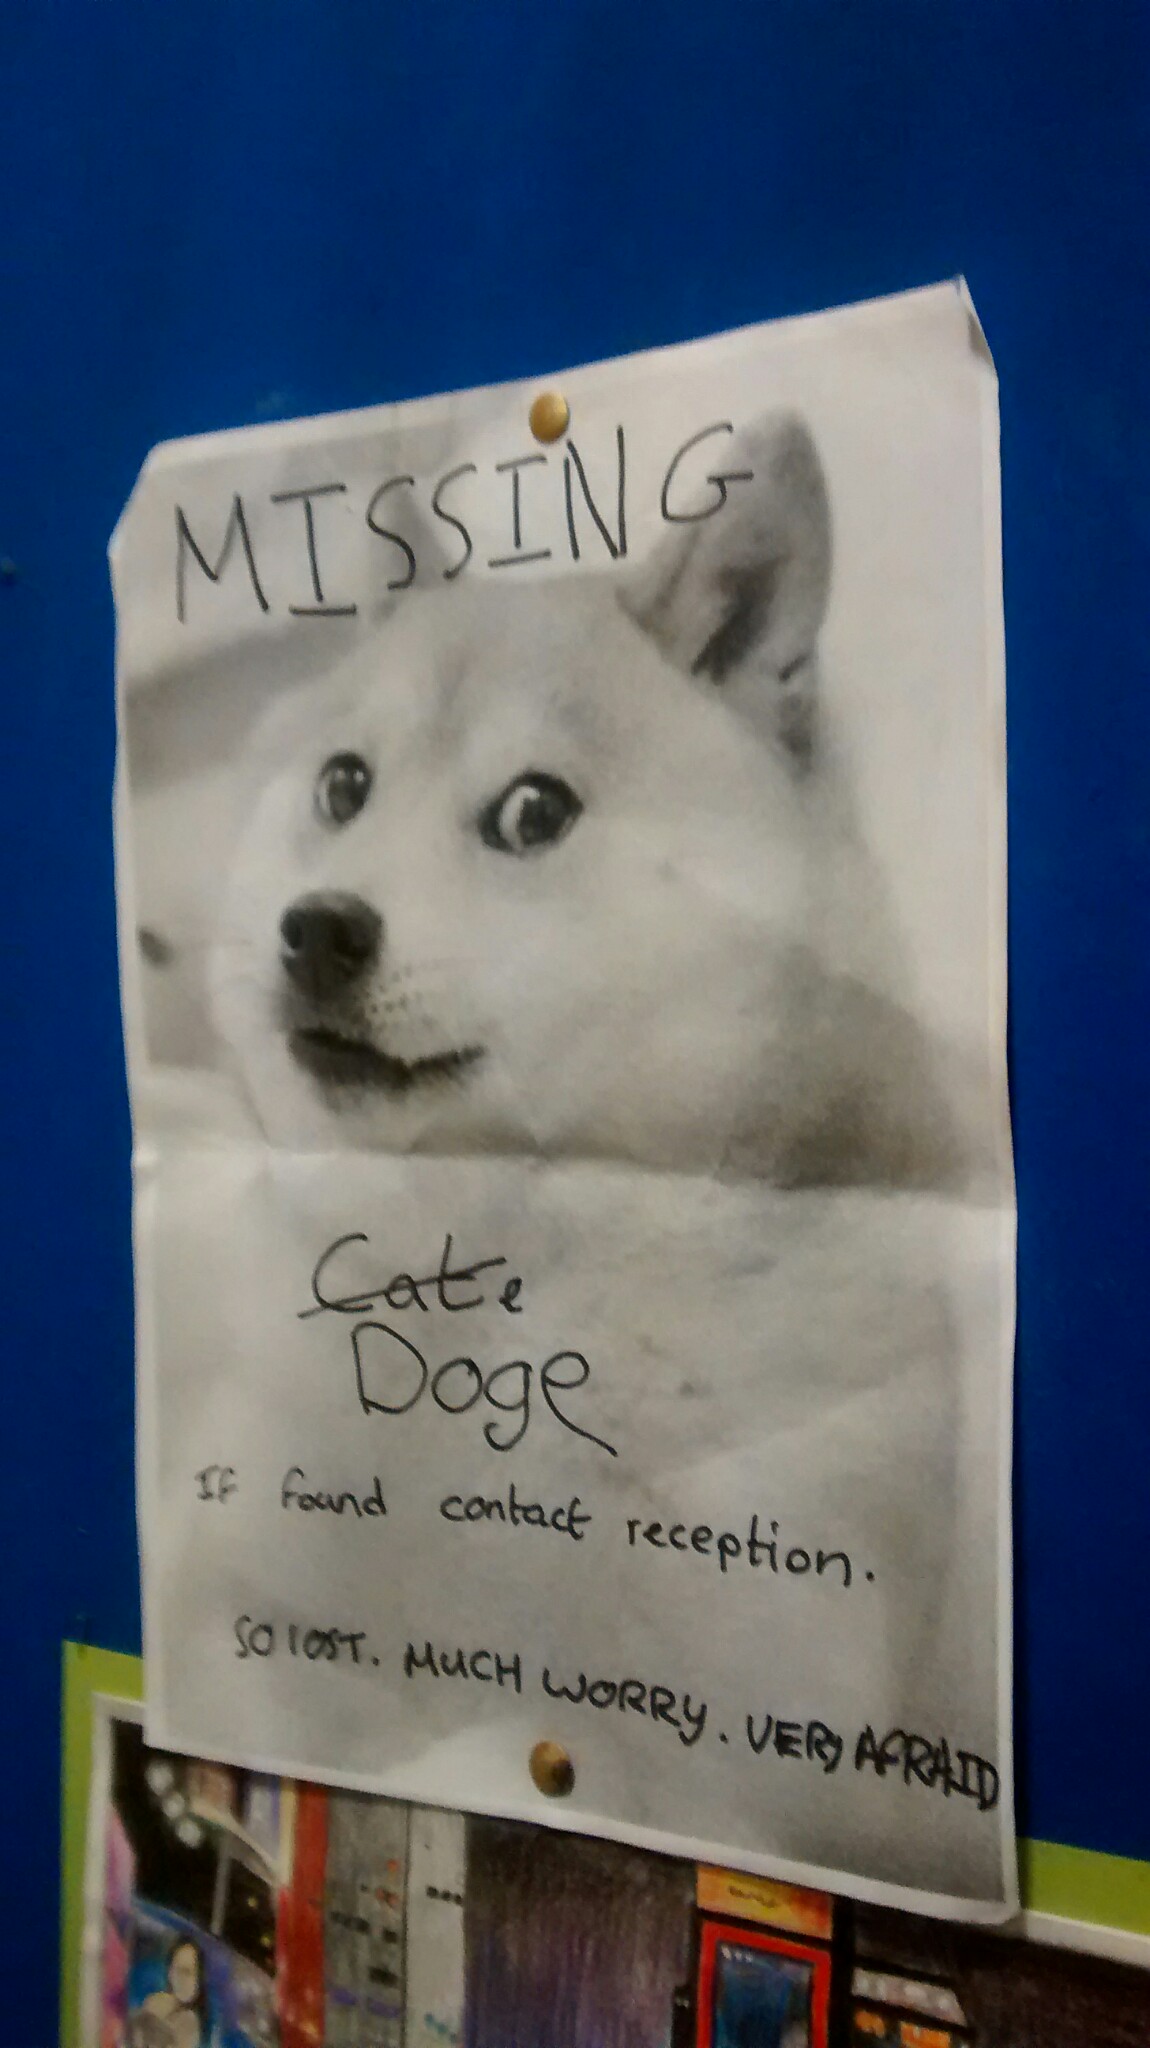 MISSING
Cate
Doge
If found contact reception.
SO lOST. MUCH WORRY. VERY AFRAID